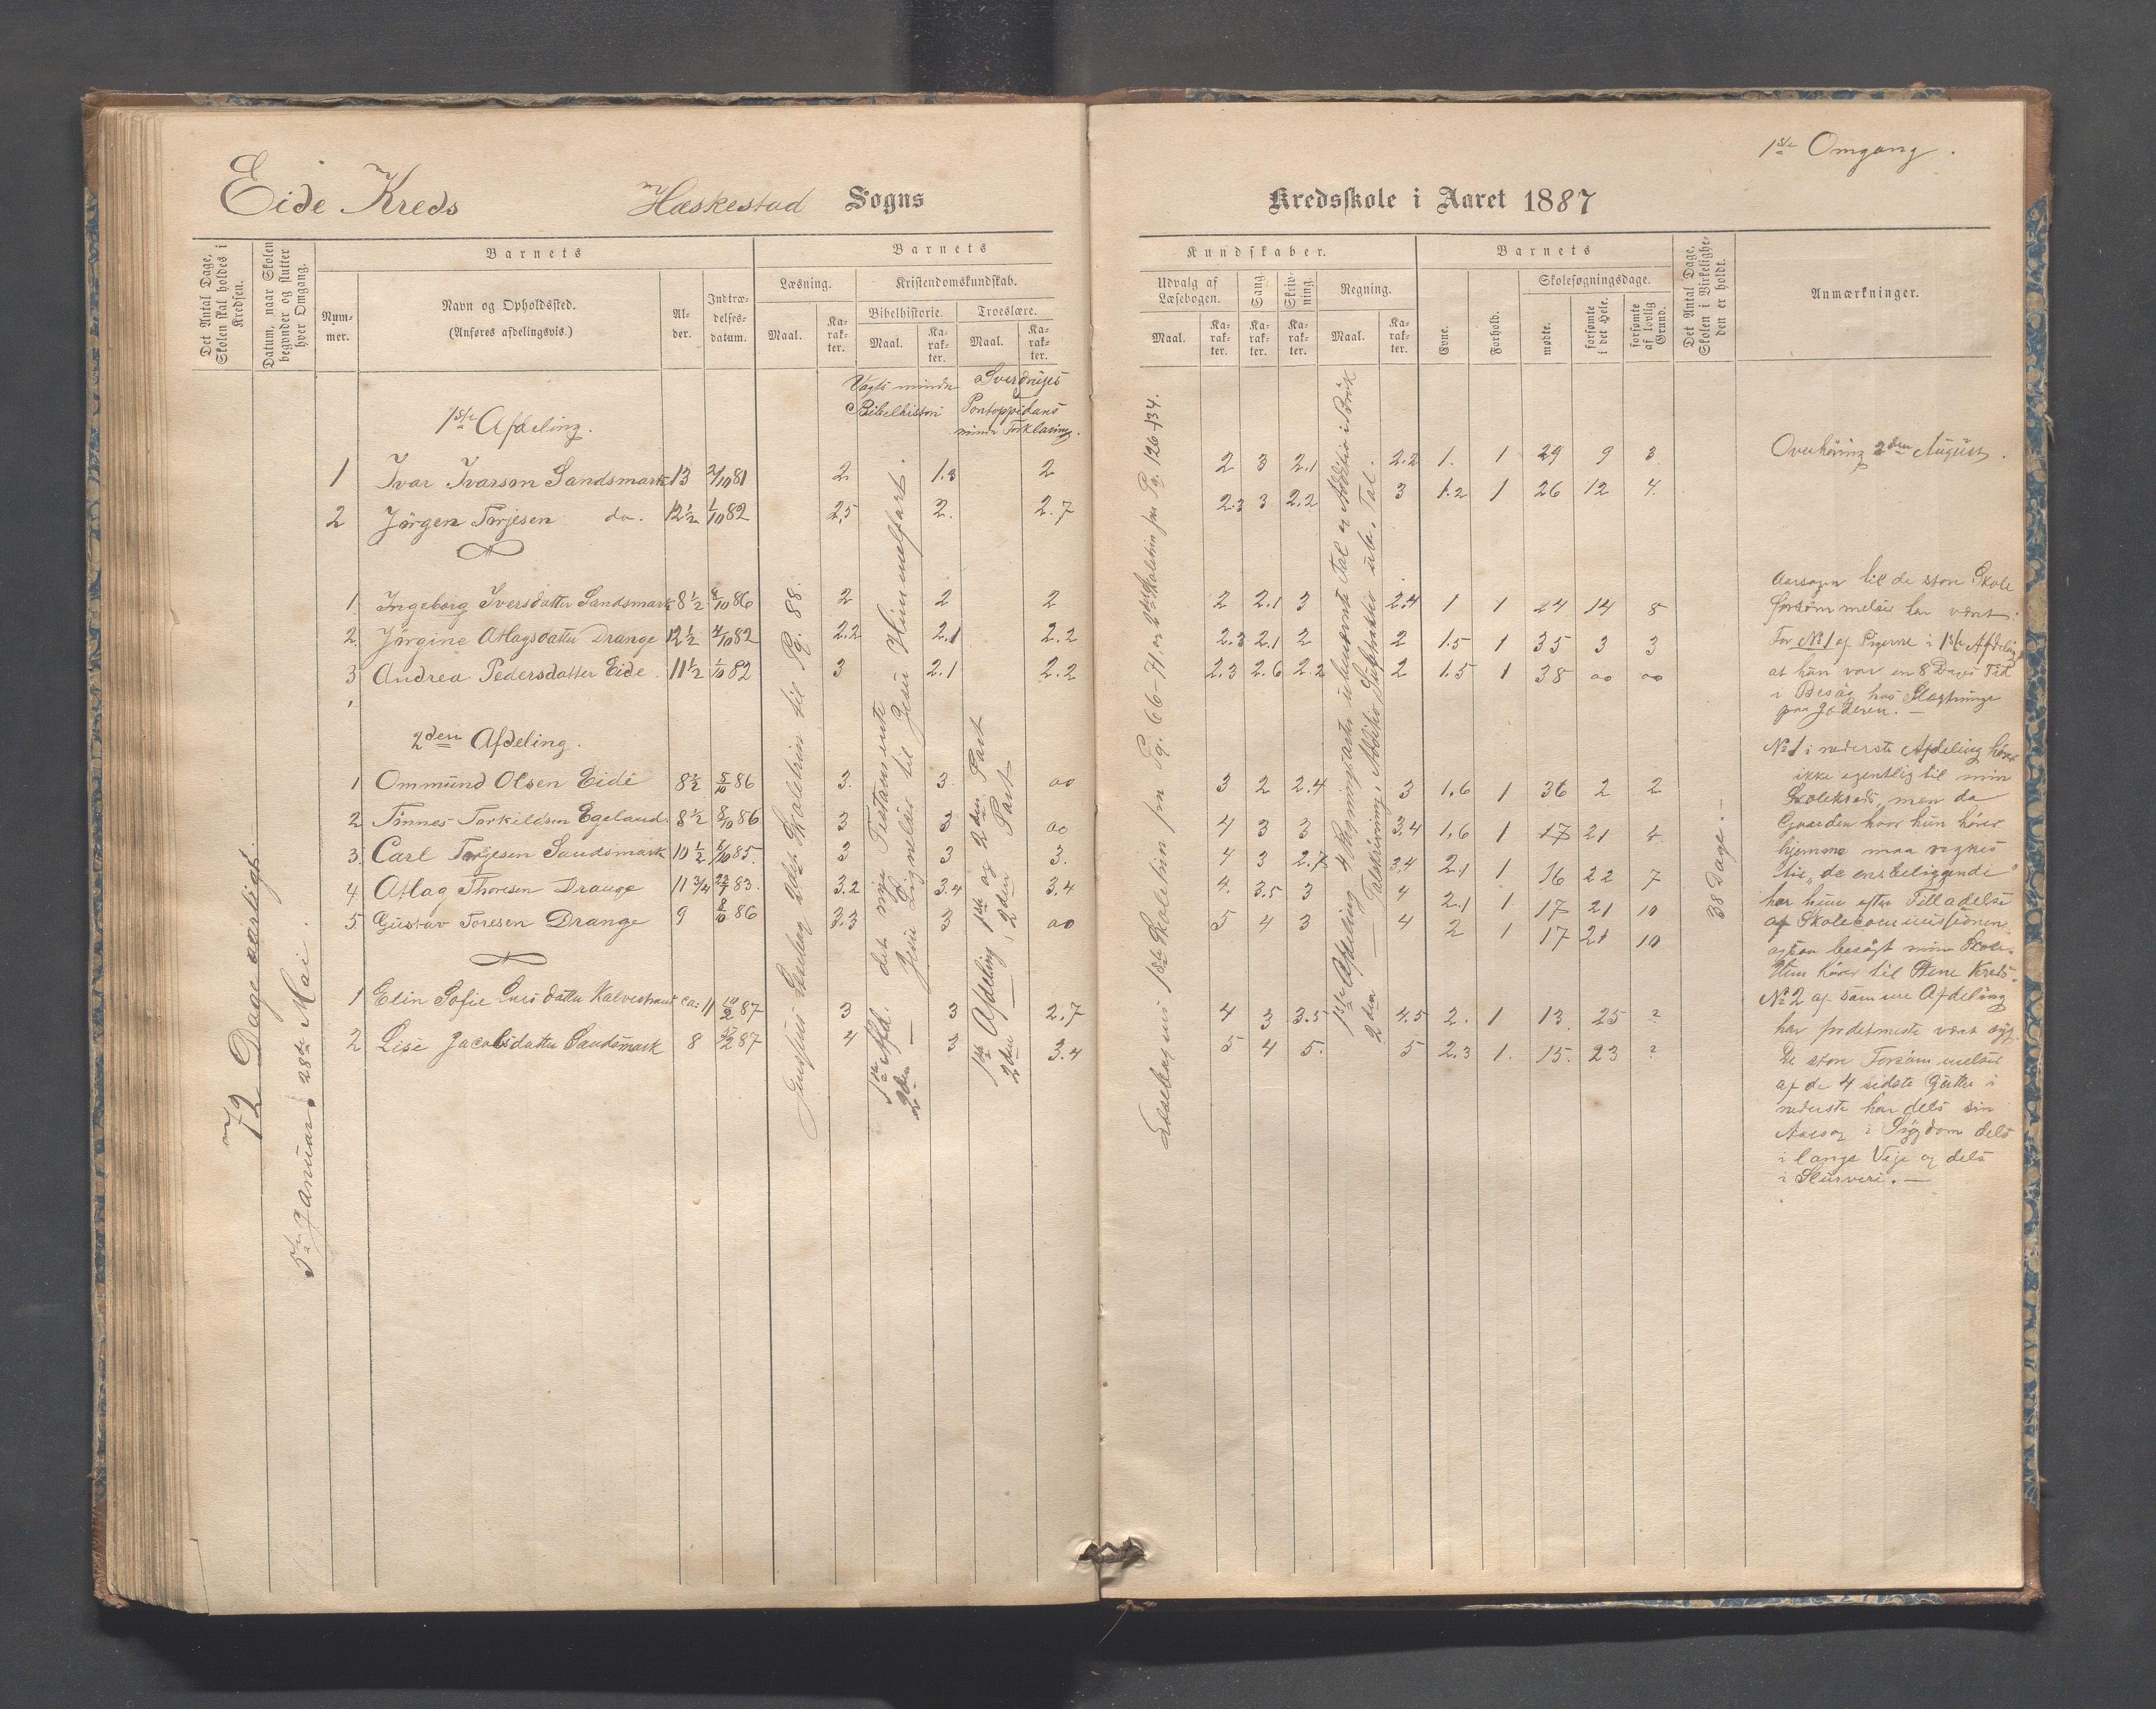 1ste Omgang.
Eide Kreds Heskestad Sogns
Kredsskole i Aaret 1887
Det Antal Dage, Skolen skal holdes i Kredsen.
Datum, naar Skolen begynder og slutter hver Omgang.
Barnets
Nummer.
Navn og Opholdssted.
(Anføres afdelingsvis.)
Alder.
Indtrædelsesdatum.
Barnets
Læsning.
Maal.
Karakter.
Kristendomskundskab.
Bibelhistorie.
Maal.
Karakter.
Troeslære.
Maal.
Karakter.
Kundskaber.
Udvalg af Læsebogen.
Maal.
Karakter.
Sang.
Karakter.
Skrivning.
Karakter.
Regning.
Maal.
Karakter.
Barnets
Evne.
Forhold.
Skolesøgningsdage.
mødte.
forsømte i det Hele.
forsømte af lovlig Grund.
Det Antal Dage, Skolen i Virkeligheden er holdt.
Anmærkninger.
72 Dage aarligt.
5te Januar 28de Mai.
Vogts mindre Bibelhistori
Sverdrups Pontoppidans mindre Forklaring.
1ste Afdeling.
1 Ivar Ivarson Sandsmark 13 2/10 81 2. 1.3 2 2 3 2.1 2.2 1. 1 29 9 3
2 Jörgen Torjesen do. 12½ 1/10 82 2,5 2. 2.7 2.3 3 2.2 3 1.2 1 26 12 4.
1. Ingeborg Iversdatter Sandsmark 8½ 8/10 86 2 2 2 2 2.1 3 2.4 1 1 24 14 8
2. Jörgine Atlagsdatter Drange 12½ 4/10 82 2.2 2.1 2.2 2.3 2.1 2 2 1.5 1 35 3 3
3 Andrea Pedersdatter Eide. 11½ 1/10 82 3 2.1 2.2 2.3 2.6 2.2 2 1.5 1 38 oo oo
2den Afdeling.
1 Ommund Olsen Eide 8½ 5/10 86 3. 3. oo 3 2 2.4 3 1.6 1 36 2 2
2 Tönnes Torkildsen Egeland. 8½ 8/10 86 3 3 oo 4 3 3 3.4 1.6 1 17 21 4
3. Carl Torjesen Sandsmark 10½ 6/10 85. 3 3 3. 4 3 2.7 3.4 2.1 1 16 22 7
4 Atlag Thoresen Drange 11¾ 22/7 83. 3.2 3.4 3.4 4. 3.5 3 4 2.1 1. 17 21 10
5. Gustav Toresen Drange 9 8/10 86 3.3 3 oo 5 4 3 4 2 1 17 21 10
1 Elin Sofie datter ca. 11 10/2 87 3 3 2.7 4 3 3.5 4.5 2. 1 13. 25 ?
2 Lise Jacobsdatter Sandsmark 8 87 4 3 3.4 5 4 5. 5 2.3 1. 15. 23 ?
Jensens Læsebog 2det Skoletrin til Pg. 88.
1ste Afd. det nye Testamente til Jesu Himmelfart.
2den — Jesu Lignelser
1ste Afdeling 1ste og 2den Part
2den — 2den Part
Læsebogens 1ste Skoletrin fra Pg. 66-71, og 2det Skoletrin fra Pg. 126-134.
1ste Afdeling 4 Regningsarter i ubenævnte Tal og Addition i Brök
2den — Talskrivning, Addition, Subtraktion i ube. Tal.
38 Dage.—
Overhöring 2den August.
Aarsagen til de store Skole
forsömmelser har været:
For No 1 af Pigerne i 1ste Afdeling
at hun var en 8 Dages Tid
i Besög hos Slægtninge
paa Jæderen.—
No 1 i nederste Afdeling hörer
ikke egentlig til min
Skolekreds, men da
Gaarden hvor hun hörer
hjemme maa regnes
til „de ensbeliggende"
har hun efter Tilladelse
af Skolecommissionen
ogsaa besögt min Skole.
Hun hörer til Stene Kreds.
No 2 af samme Afdeling
har fordetmeste været syg.
De store Forsömmelser
af de 4 sidste Gutter i
nederste har dels sin
Aarsag i Sygdom dels
i lange Veje og dels
i Slurveri.—